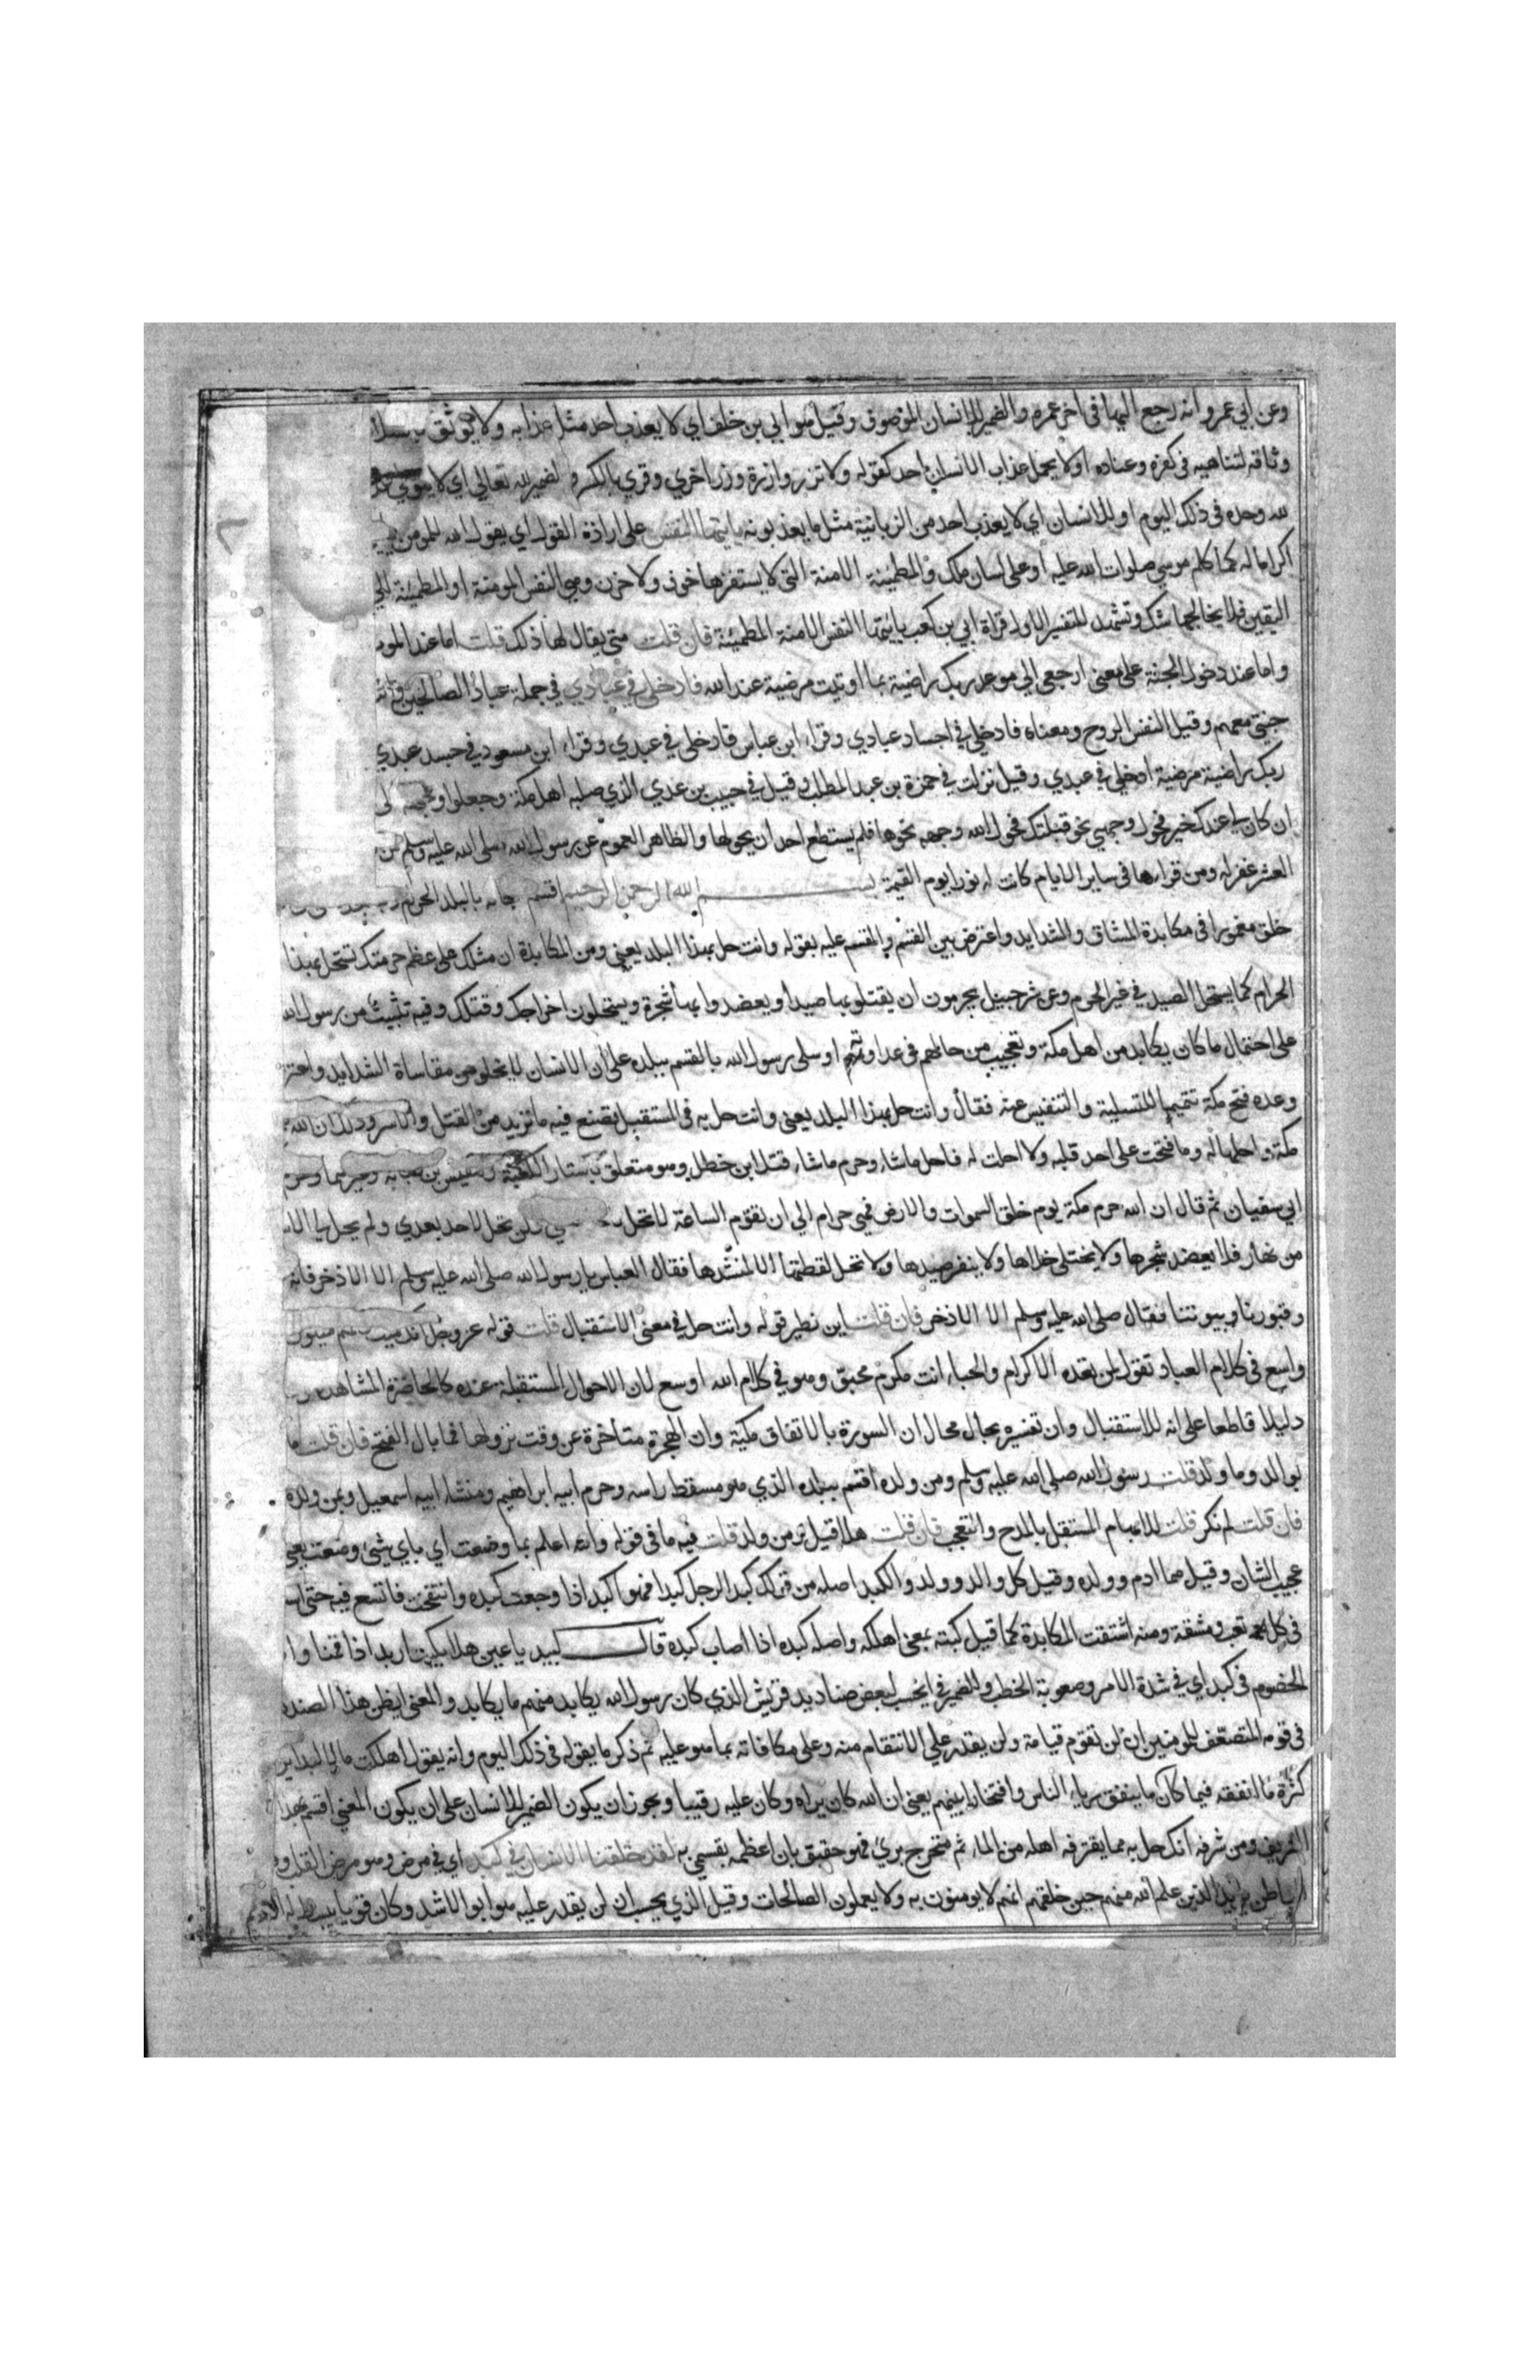 وعن ابي عمرو انه رجع اليها في اخر عمره والضمير للانسان الموصوف وقيل هو ابي بن خلف اي لا يعذب احد مثل عذابه ولا يوثق
وثاقه لتناهيه في كفره وعناده او لا يحمل عذاب الانسان احد كقوله ولا تزر وازرة وزر اخري وقري بالكسر لضمير الله تعالي اي لا
لله وحده في ذلك اليوم او للانسان اي لا يعذب احد من الزبانية مثل ما يعذبونه يا يتها النفس علي ارادة القول اي يقول الله للمومن
اكراما له كما كلم موسي صلوات الله عليه او علي لسان ملك والمطمينة الامنة التي لا يستفزها خوف ولا حزن وهي النفس المومنة او المطمئنة الي
اليقين فلا يخالجها شك وتشهد للتفسير الاول قراة ابي بن كعب يا يتها النفس الامنة المطمئنة فان قلت متي يقال لها ذلك قلت اما عند الموت
واما عند دخول الجنة علي معني ارجعي الي موعد ربك راضية بما اوتيت مرضية عند الله فادخلي في عبادي في جملة عبادي الصالحين
جنتي معهم وقيل النفس الروح ومعناه فادخلي في اجساد عبادي وقراء ابن عباس فادخلي في عبدي وقراء ابن مسعود في جسد عبدي
ربك راضية مرضية ادخلي في عبدي وقيل نزلت في حمزة بن عبد المطلب وقيل في حبيب بن عدي الذي صلبه اهل مكة وجعلوا وجهه الي
ان كان لي عندك خير فحول وجهي نحو قبلتك فحول الله وجهه نحوها فلم يستطع احد ان يحولها والظاهر العموم عن رسول الله صلي الله عليه وسلم من
العشر غفر له ومن قراها في ساير الايام كانت له نورا يوم القيمة بسم الله الرحمن الرحيم اقسم سبحانه بالبلد الحرام
خلق مغمورا في مكابدة المشاق والشدايد واعترض بين القسم والمقسم عليه بقوله وانت حل بهذا البلد يعني ومن المكابدة ان مثلك علي عظم حرمتك تستحل بهذا
الحرام كما يستحل الصيد في غير الحرم وعن شرحبيل يحرمون ان يقتلوا بها صيدا ويعضدوا بها شجرة ويستحلون اخراجك وقتلك وفيه تثبيت من رسول الله
علي احتمال ما كان يكابد من اهل مكة وتعجيب من حالهم في عداوتهم او سلي رسول الله بالقسم ببلده علي ان الانسان لا يخلو من مقاساة الشدايد واعترض
وعده فتح مكة تتميما للتسلية والتنفيس عنه فقال وانت حل بهذا البلد يعني وانت حل به في المستقبل تصنع فيه ما تريد من القتل والاسر وذلك ان الله
مكة واحلها له وما فتحت علي احد قبله ولا احلت له فاحل ماشاء وحرم ماشاء قتل ابن خطل وهو متعلق باستار الكعبة ومقيس بن صبابه وغيرهما وحرم
ابي سفيان ثم قال ان الله حرم مكة يوم خلق السموات والارض فهي حرام الي ان تقوم الساعة لا تحل ولن تحل لاحد بعدي ولم يحل لي الا
من نهار فلا يعضد شجرها ولا يختلي خلاها ولا ينفر صيدها ولا تحل لقطتها الا لمنشدها فقال العباس يا رسول الله صلي الله عليه وسلم الا الاذخر فانه
وقبورنا وبيوتنا فقال صلي الله عليه وسلم الا الاذخر فان قلت اين نظير قوله وانت حل في معني الاستقبال قلت قوله عز وجل انك ميت وانهم ميتون
واسع في كلام العباد تقول لمن تعده الاكرام والحباء انت مكرم محبو وهو في كلام الله اوسع لان الاحوال المستقبلة عنده كالحاضرة المشاهدة
دليلا قاطعا علي انه للاستقبال وان تفسيره بحال محال ان السورة بالاتفاق مكية وان الهجرة متاخرة عن وقت نزولها فما بال الفتح فان قلت ما
بوالد وما ولد قلت رسول الله صلي الله عليه وسلم ومن ولده اقسم ببلده الذي هو مسقط راسه وحرم ابيه ابراهيم ومنشاء ابيه اسمعيل وبمن ولده
فان قلت لم نكر قلت للابهام المستقل بالمدح والتعجب فان قلت هلا قيل ومن ولد قلت فيه ما في قوله والله اعلم بما وضعت اي باي شيء وضعت يعني
عجيب الشان وقيل هما ادم وولده وقيل كل والد وولد والكبد اصله من قولك كبد الرجل كبدا فهو اكبد اذا وجعت كبده وانتفخت فاتسع فيه حتي
في كل تعب ومشقة ومنه اشتقت المكابدة كما قيل كبته بمعني اهلكه واصله كبده اذا اصاب كبده قال لبيد يا عين هلا بكيت اربد اذ اقمنا وا
الخصوم في كبد اي في شدة الامر وصعوبة الخطب والضمير في ايحسب لبعض صناديد قريش الذي كان رسول الله يكابد منهم ما يكابد والمعني ايظن هذا الصنديد
في قومه المتضعف للمومنين ان لن تقوم قيامة ولن يقدر علي الانتقام منه وعلي مكافاته بما هو عليه ثم ذكر ما يقوله في ذلك اليوم وانه يقول اهلكت مالا لبدا يريد
كثرة ما انفقه فيما كان ما ينفق رياء الناس وافتخارا بينهم يعني ان الله كان يراه وكان عليه رقيبا ويجوز ان يكون الضمير للانسان علي ان يكون المعني اقسم بهذا
الشريف ومن شرفه انك حل به مما يقترفه اهله من الماثم متحرج بري فهو حقيق بان اعظمه بقسمي به لقد خلقنا الانسان في كبد اي في مرض وهو مرض القلب و
الباطن يريد الذين علم الله منهم حين خلقهم انهم لا يومنون به ولا يعملون الصالحات وقيل الذي يحسب ان لن يقدر عليه هو ابو الاشد وكان قويا يبسط له الاديم